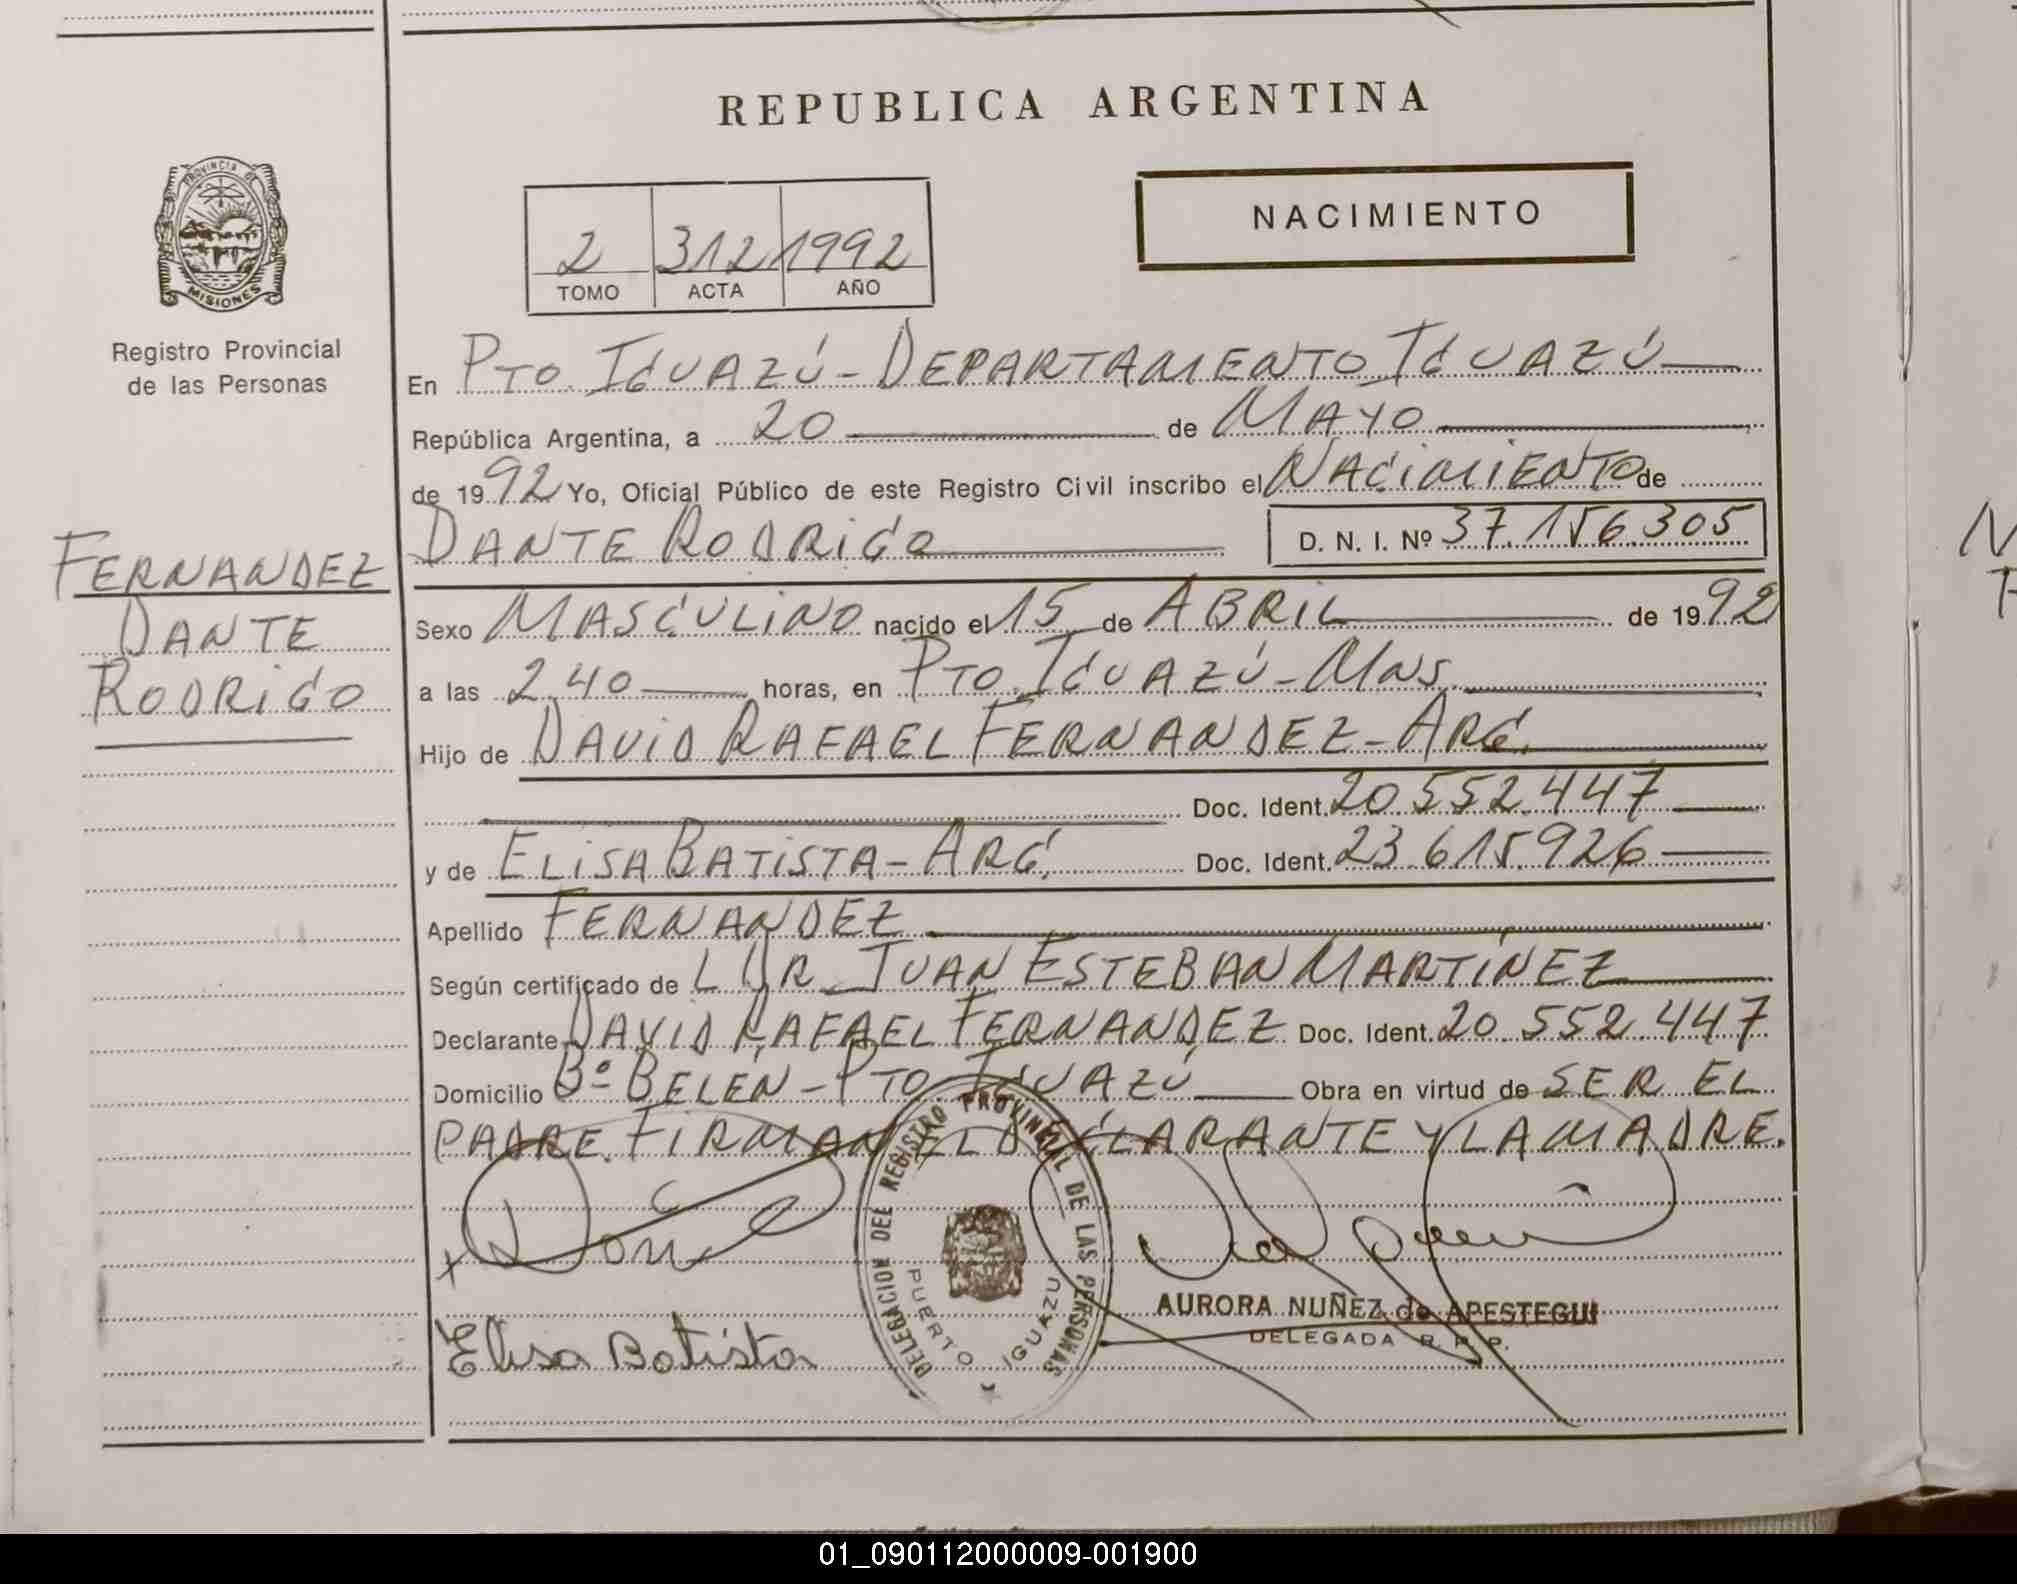 REPUBLICA ARGENTINA
PROVINCIA DE
MISIONES
Registro Provincial
de las Personas
NACIMIENTO
2 312 1992
TOMO ACTA AÑO
En PTO. IGUAZÚ - DEPARTAMENTO IGUAZÚ
República Argentina, a 20 de MAYO
de 1992 Yo, Oficial Público de este Registro Civil inscribo el NACIMIENTO de
DANTE RODRIGO D. N. I. Nº 37.156.305
FERNANDEZ
DANTE
RODRIGO
Sexo MASCULINO nacido el 15 de ABRIL de 1992
a las 2.40 horas, en PTO. IGUAZÚ - MNS.
Hijo de DAVID RAFAEL FERNANDEZ - ARG.
Doc. Ident. 20.552.447
y de ELISA BATISTA - ARG. Doc. Ident. 23.615.926
Apellido FERNANDEZ
Según certificado de JUAN ESTEBAN MARTÍNEZ
Declarante DAVID RAFAEL FERNANDEZ Doc. Ident. 20.552.447
Domicilio Bº BELEN - PTO IGUAZÚ Obra en virtud de SER EL
PADRE. FIRMAN EL DECLARANTE Y LA MADRE.
DELEGACION DEL REGISTRO PROVINCIAL DE LAS PERSONAS
PUERTO IGUAZU
AURORA NUÑEZ de APESTEGUI
DELEGADA R. P. P.
Elisa Batista
01_090112000009-001900